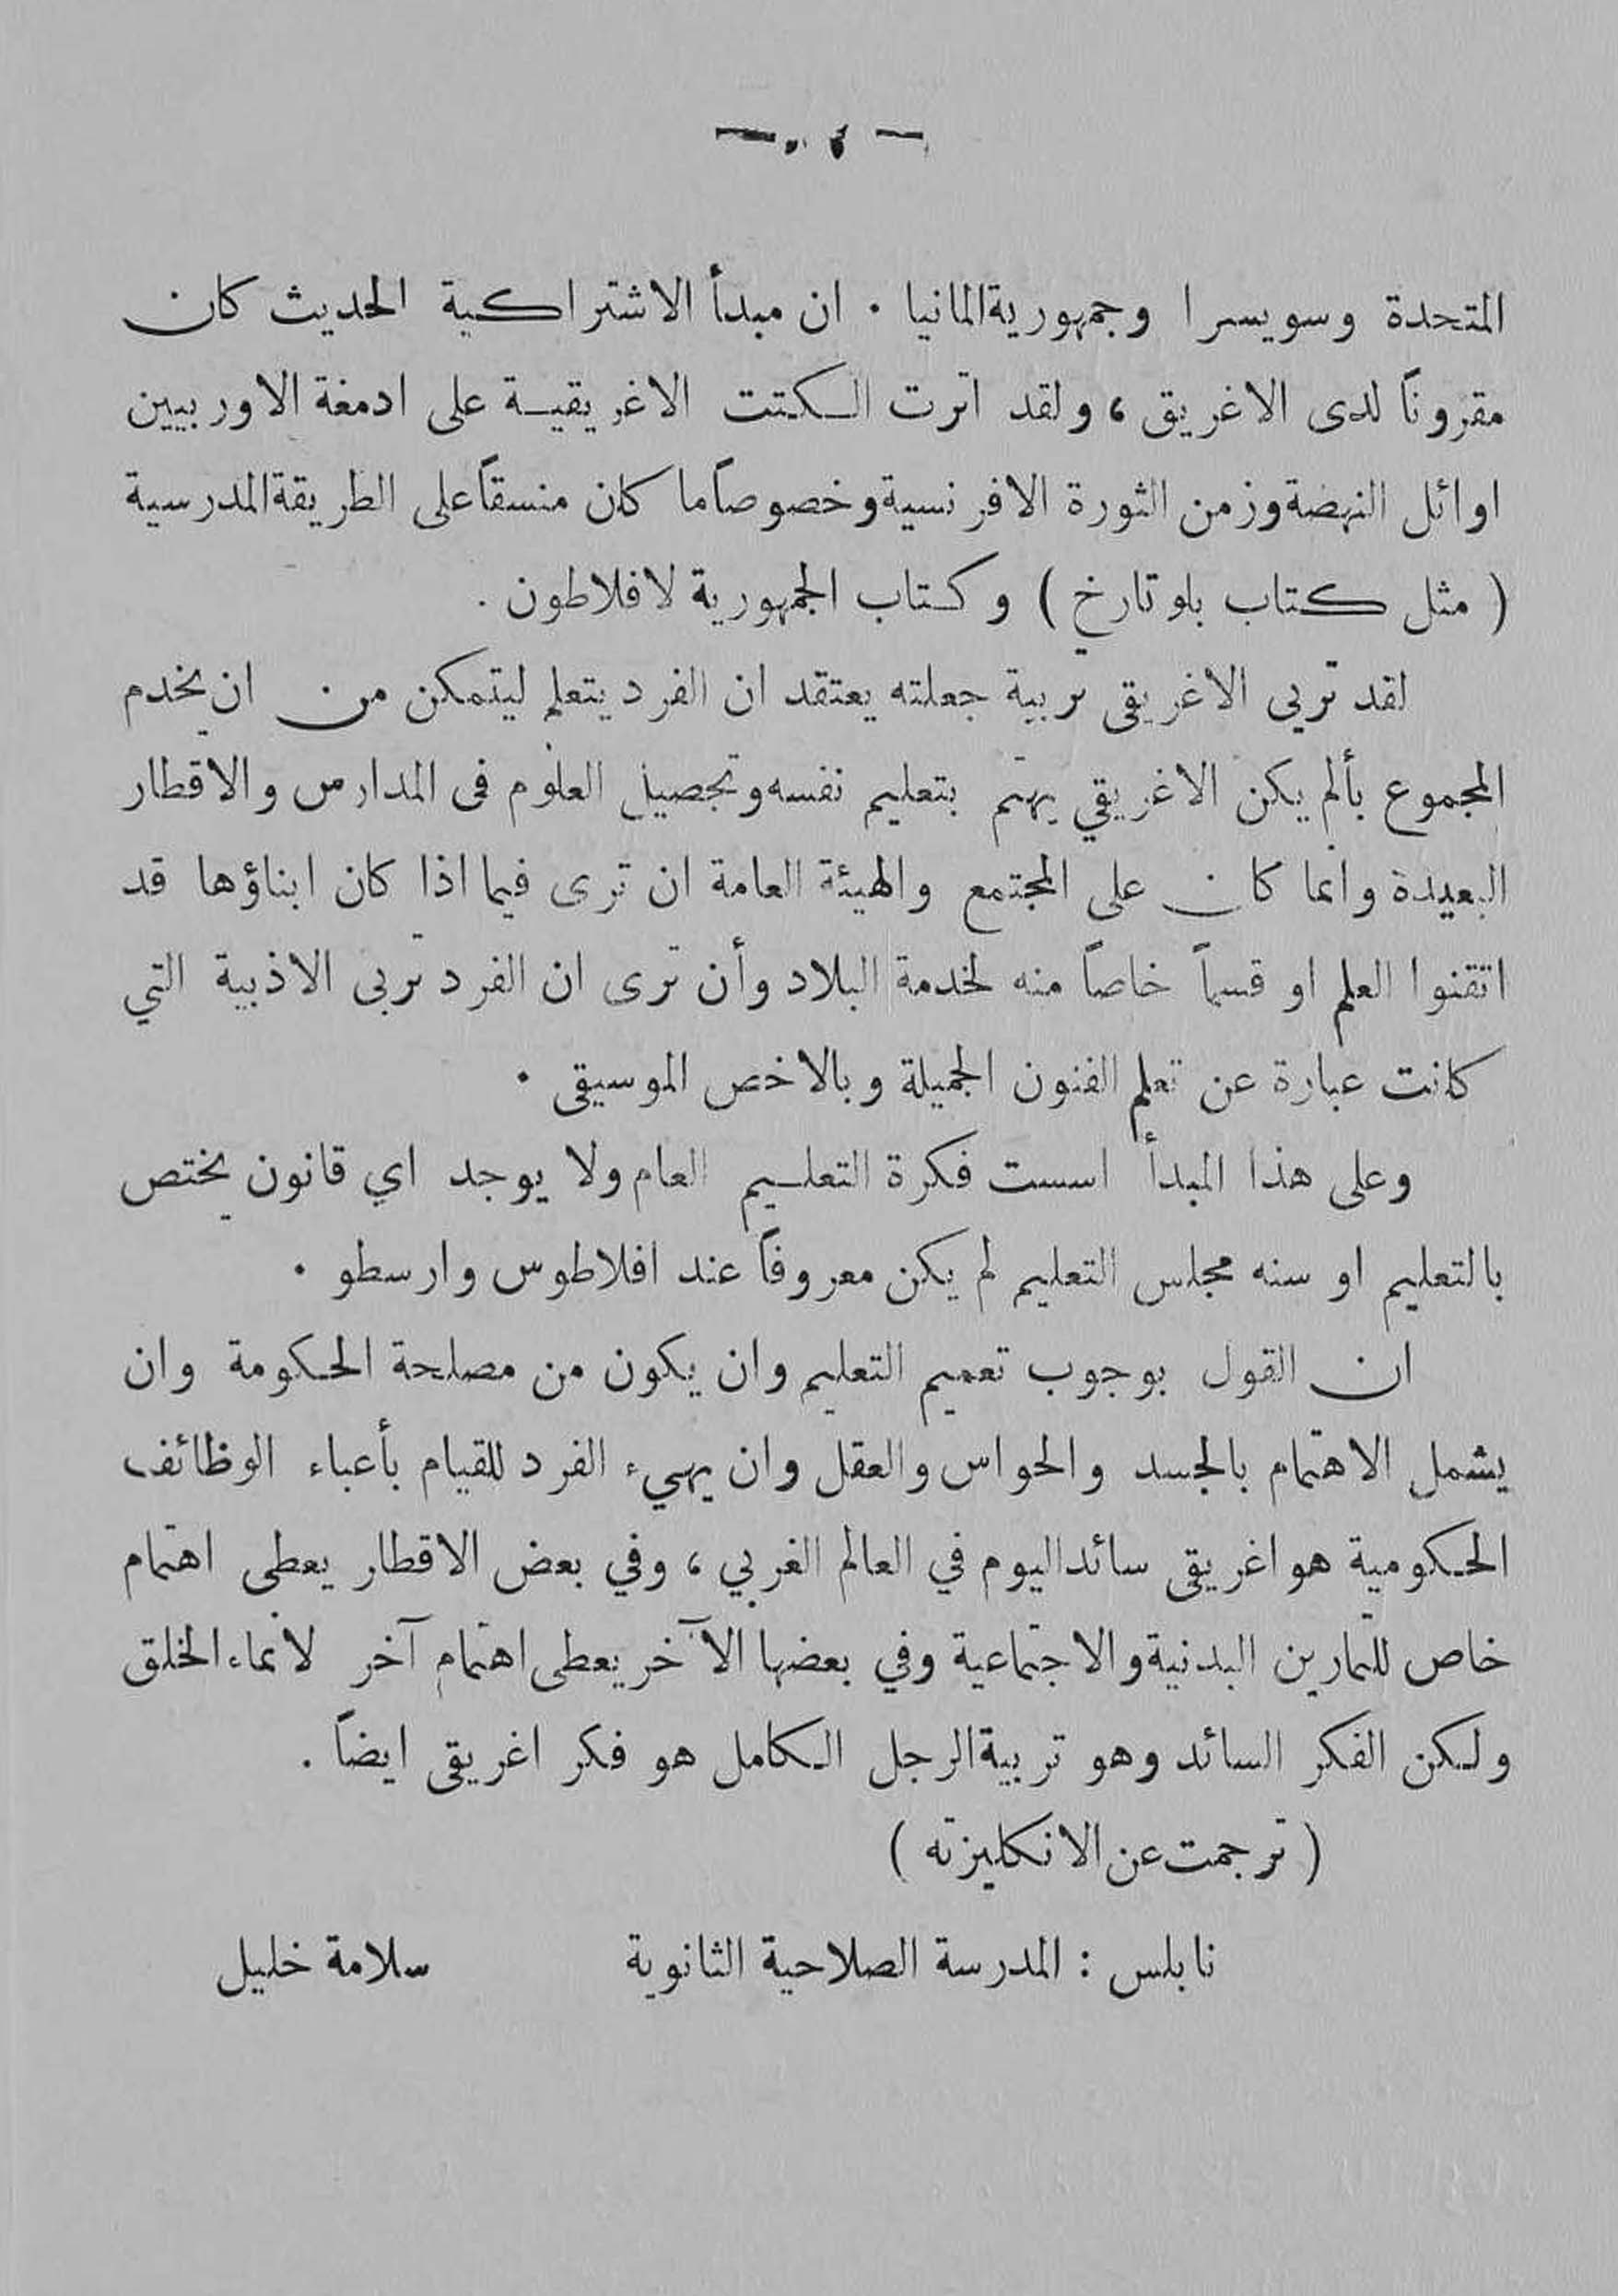 المتحدة وسويسرا وجمهورية المانيا . ان مبدأ الاشتراكية الحديث كان
مقروناً لدى الاغريق ، ولقد اثرت الكتت الاغريقية على ادمغة الاوربيين
اوائل النهضة وزمن الثورة الافرنسية وخصوصاً ما كان منسقاً على الطريقة المدرسية
( مثل كتاب بلوتارخ ) وكتاب الجمهورية لافلاطون .
لقد تربى الاغريقى تربية جعلته يعتقد ان الفرد يتعلم ليتمكن من ان يخدم
المجموع بألم يكن الاغريقي يهتم بتعليم نفسه وتحصيل العلوم فى المدارس والاقطار
البعيدة وانما كان على المجتمع والهيئة العامة ان ترى فيما اذا كان ابناؤها قد
اتقنوا العلم او قسماً خاصاً منه لخدمة البلاد وأن ترى ان الفرد تربى الاذبية التي
كانت عبارة عن تعلم الفنون الجميلة وبالاخص الموسيقى .
وعلى هذا المبدأ اسست فكرة التعليم العام ولا يوجد اي قانون يختص
بالتعليم او سنه مجلس التعليم لم يكن معروفاً عند افلاطوس وارسطو .
ان القول بوجوب تعميم التعليم وان يكون من مصلحة الحكومة وان
يشمل الاهتمام بالجسد والحواس والعقل وان يهيء الفرد للقيام بأعباء الوظائف
الحكومية هو اغريقى سائد اليوم في العالم الغربي ، وفي بعض الاقطار يعطى اهتمام
خاص للتمارين البدنية والاجتماعية وفي بعضها الآخر يعطى اهتمام آخر لانماء الخلق
ولكن الفكر السائد وهو تربية الرجل الكامل هو فكر اغريقى ايضاً .
( ترجمت عن الانكليزته )
نابلس : المدرسة الصلاحية الثانوية سلامة خليل